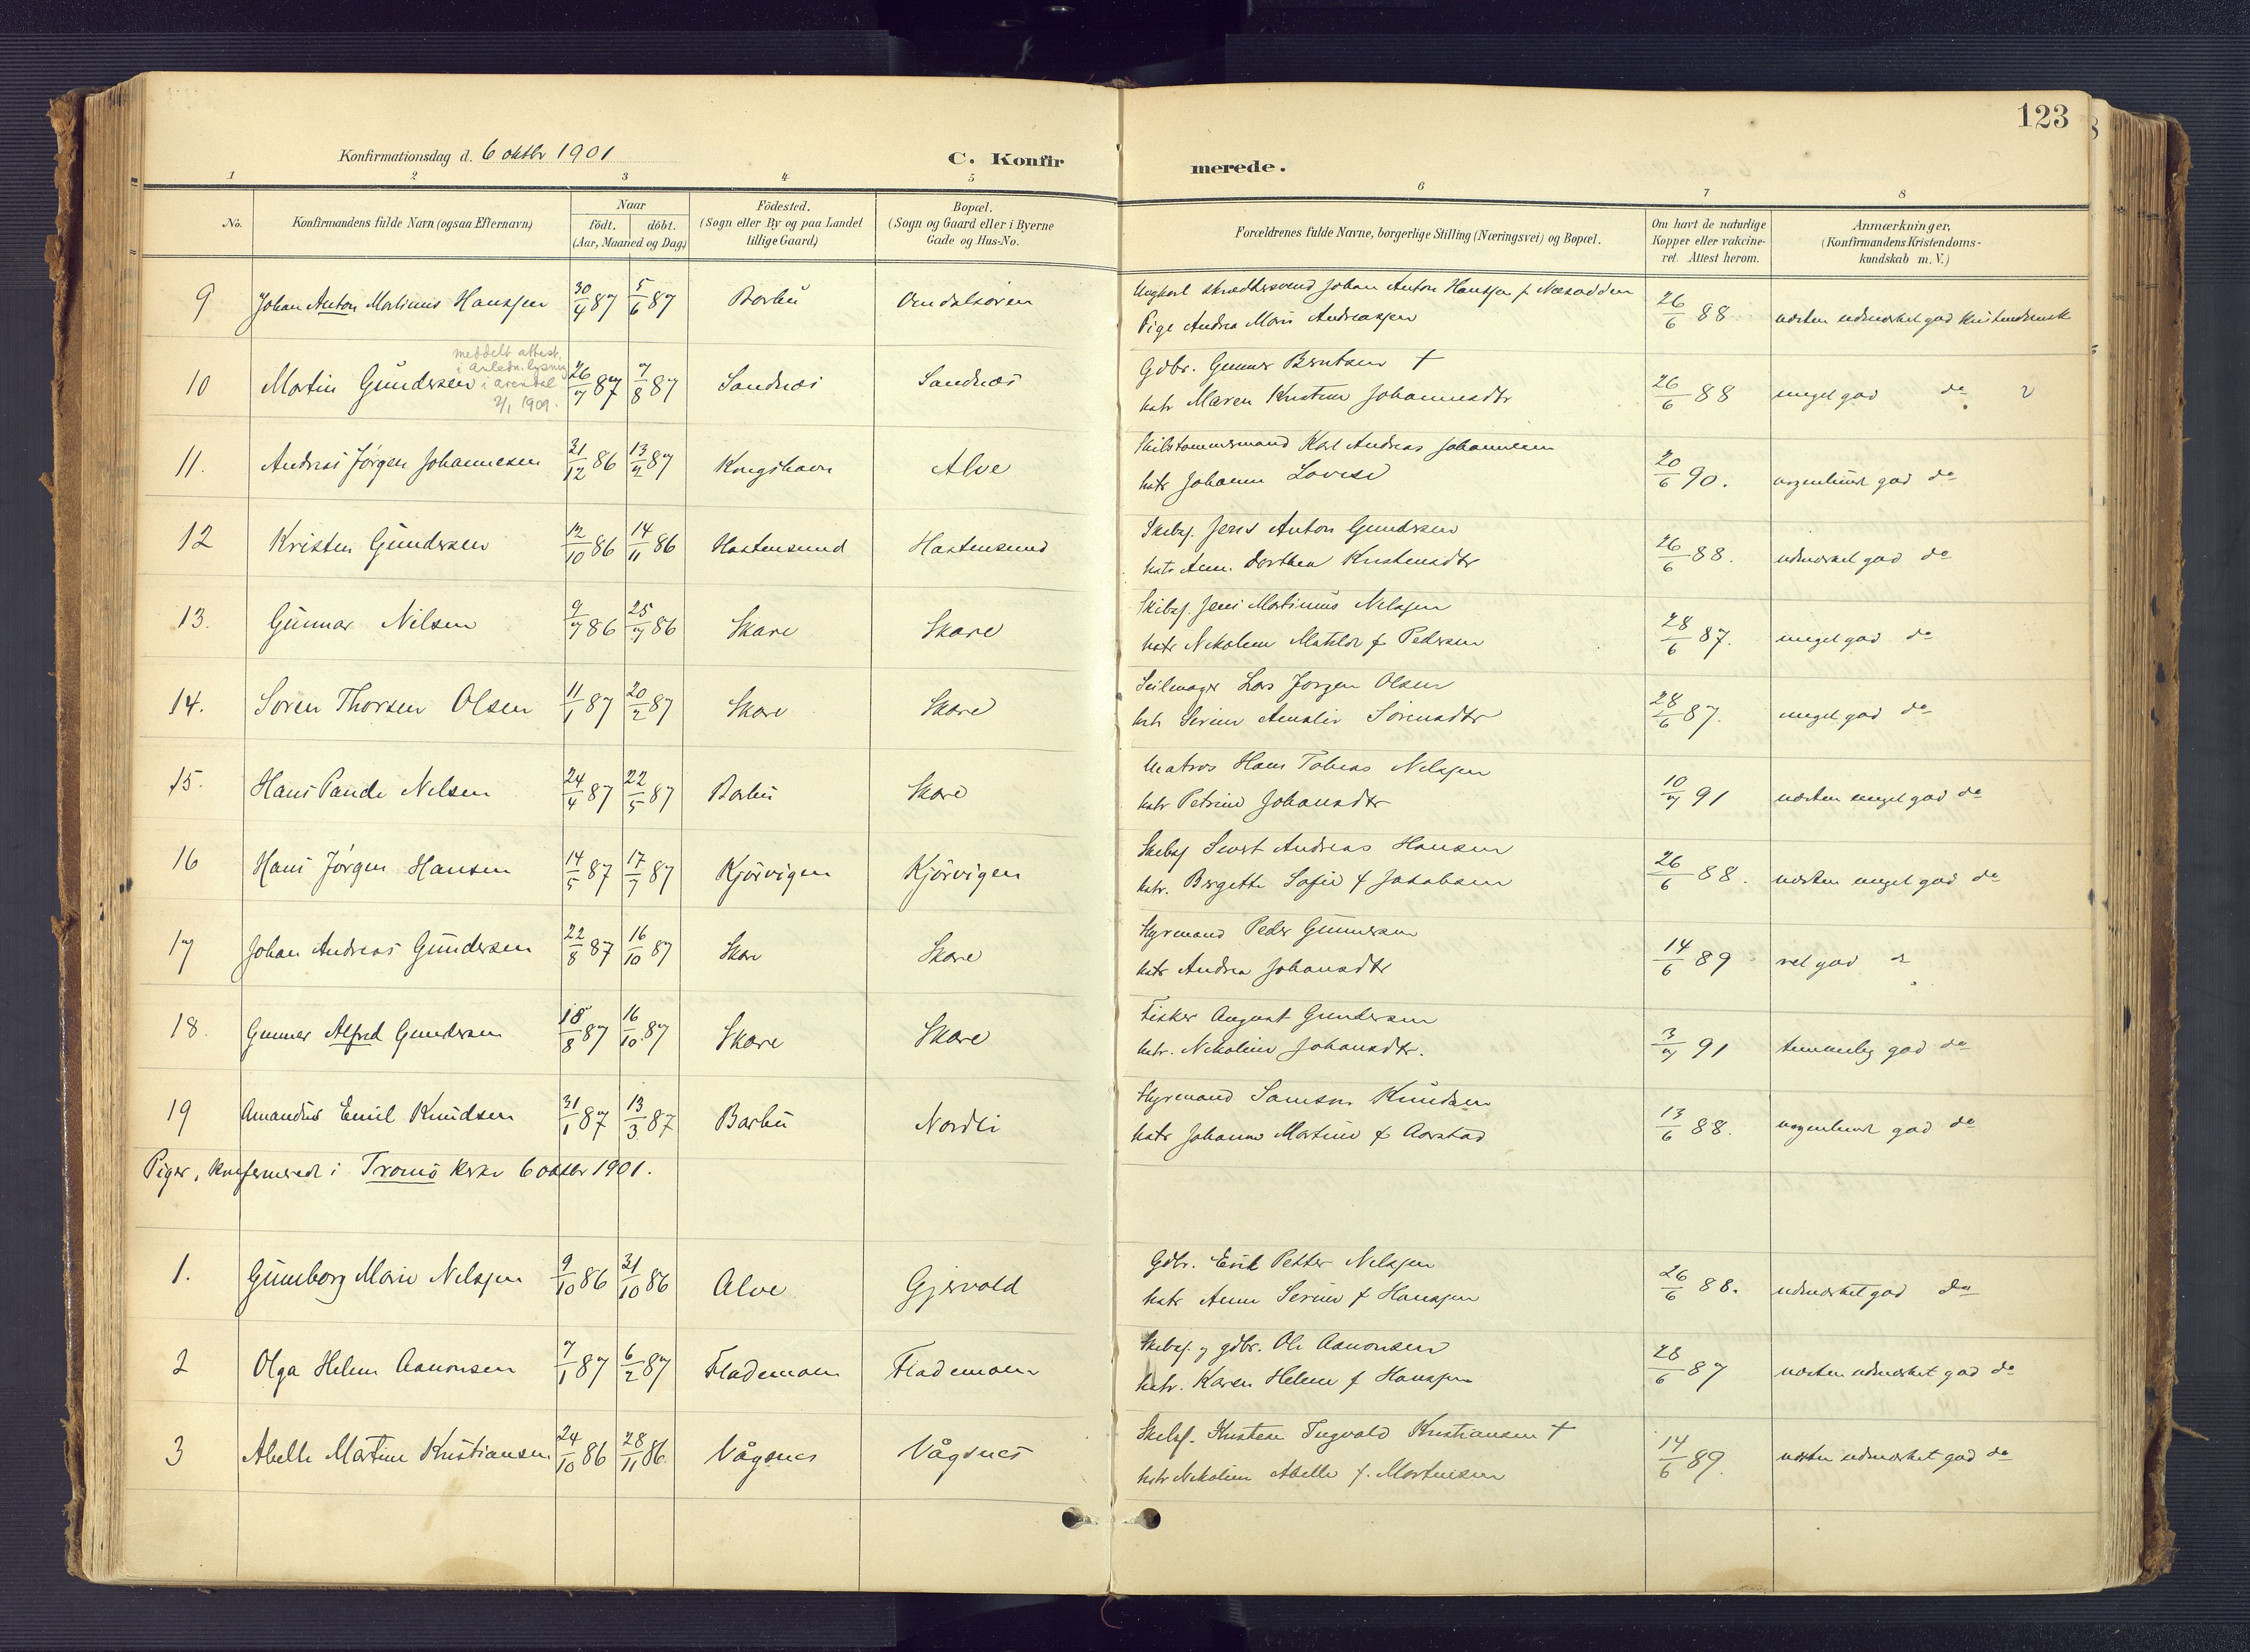 123
Konfirmationsdag d. 6 oktbr 1901
C. Konfirmerede.
1 2 3 4 5 6 7 8
No.
Konfirmandens fulde Navn (ogsaa Efternavn)
Naar
födt. döbt.
(Aar, Maaned og Dag)
Födested.
(Sogn eller By og paa Landet
tillige Gaard)
Bopæl.
(Sogn og Gaard eller i Byerne
Gade og Hus-No.
Forældrenes fulde Navne, borgerlige Stilling (Næringsvei) og Bopæl.
Om havt de naturlige
Kopper eller vakcine-
ret. Attest herom.
Anmærkninger,
(Konfirmandens Kristendoms-
kundskab m.V.)
9 Johan Anton Martinius Hansen 30/4 87 5/6 87 Barbu
Ungkarl skrædersvend Johan Anton Hansen f Næsodden
Pige Andrea Marie Andreassen
26/6 88 næsten udmærket god
meddelt attest
i anledn. lysning
i Arendal
2/1 1909.
10 Martin Gundersen 26/7 87 7/8 87 Sandnæs Sandnæs
Gdbr. Gunner Berntsen †
hstr Maren Kristine Johannesdtr
26/6 88 meget god do
11. Andreas Jörgen Johannesen 31/12 86 13/2 87 Kongshavn Alve
Skibstømmermand Karl Andreas Johannesen
hstr Johanne Lovise
20/6 90. nogenlunde god do
12 Kristen Gundersen 12/10 86 14/11 86 Hastensund Hastensund
Skibsf. Jens Anton Gundersen
hstr Ann. Dorthea Kristensdtr
26/6 88. udmærket god do
13. Gunnar Nilsen 9/7 86 25/7 86 Skare Skare
Skibsf. Jens Martinius Nilsen
hstr Nikoline Matilde f Pedersen
28/6 87. meget god do
14. Sören Thorsen Olsen 11/1 87 20/2 87 Skare Skare
Seilmager Lars Jorgen Olsen
hstr Serine Amalie Sörensdtr
28/6 87. meget god do
15. Hans Pande Nilsen 24/4 87 22/5 87 Barbu Skare
Matros Hans Tobias Nilsen
hstr Petrine Johansdtr
10/7 91 næsten meget god do
16 Hans Jörgen Hansen 14/5 87 17/7 87 Kjörvigen Kjörvigen
Skibsf Sivert Andreas Hansen
hstr. Bergette Sofie f Jakobsen
26/6 88. næsten meget god do
17 Johan Andreas Gundersen 22/8 87 16/10 87 Skare Skare
Styrmand Peder Gundersen
hstr Andrea Johansdtr
14/6 89 vel god do
18. Gunner Alfred Gundersen 18/8 87 16/10 87 Skare Skare
Fisker August Gundersen
hstr. Nikoline Johansdtr.
3/7 91 temmelig god do
19 Amandus Emil Knudsen 31/1 87 13/3 87 Barbu Nordli
Styrmand Samson Knudsen
hstr Johanne Martine f Aarstad
13/6 88. nogenlunde god do
Piger, konfirmerede i Tromö Kirke 6 oktbr 1901.
1. Gunborg Marie Nilsen 9/10 86 31/10 86 Alve Gjervold
Gdbr. Erik Petter Nilsen
hstr Anne Serine f Hansen
26/6 88. udmærket god do
2 Olga Helene Aanonsen 7/1 87 6/2 87 Flademoen Flademoen
Skibsf. og gdbr. Ole Aanonsen
hstr. Karen Helene f Hansen
28/6 87 næsten udmærket god do
3 Abelle Martine Kristiansen 24/10 86 28/11 86 Vågsnes Vågsnes
Skibsf. Kristen Ingvald Kristiansen †
hstr Nikoline Abelle f. Mortensen
14/6 89. næsten udmærket god do